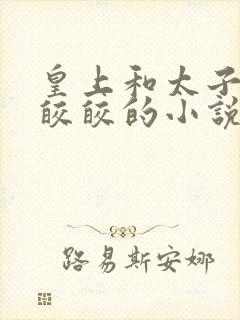 皇上和太子
皎皎的小説
路易斯安娜